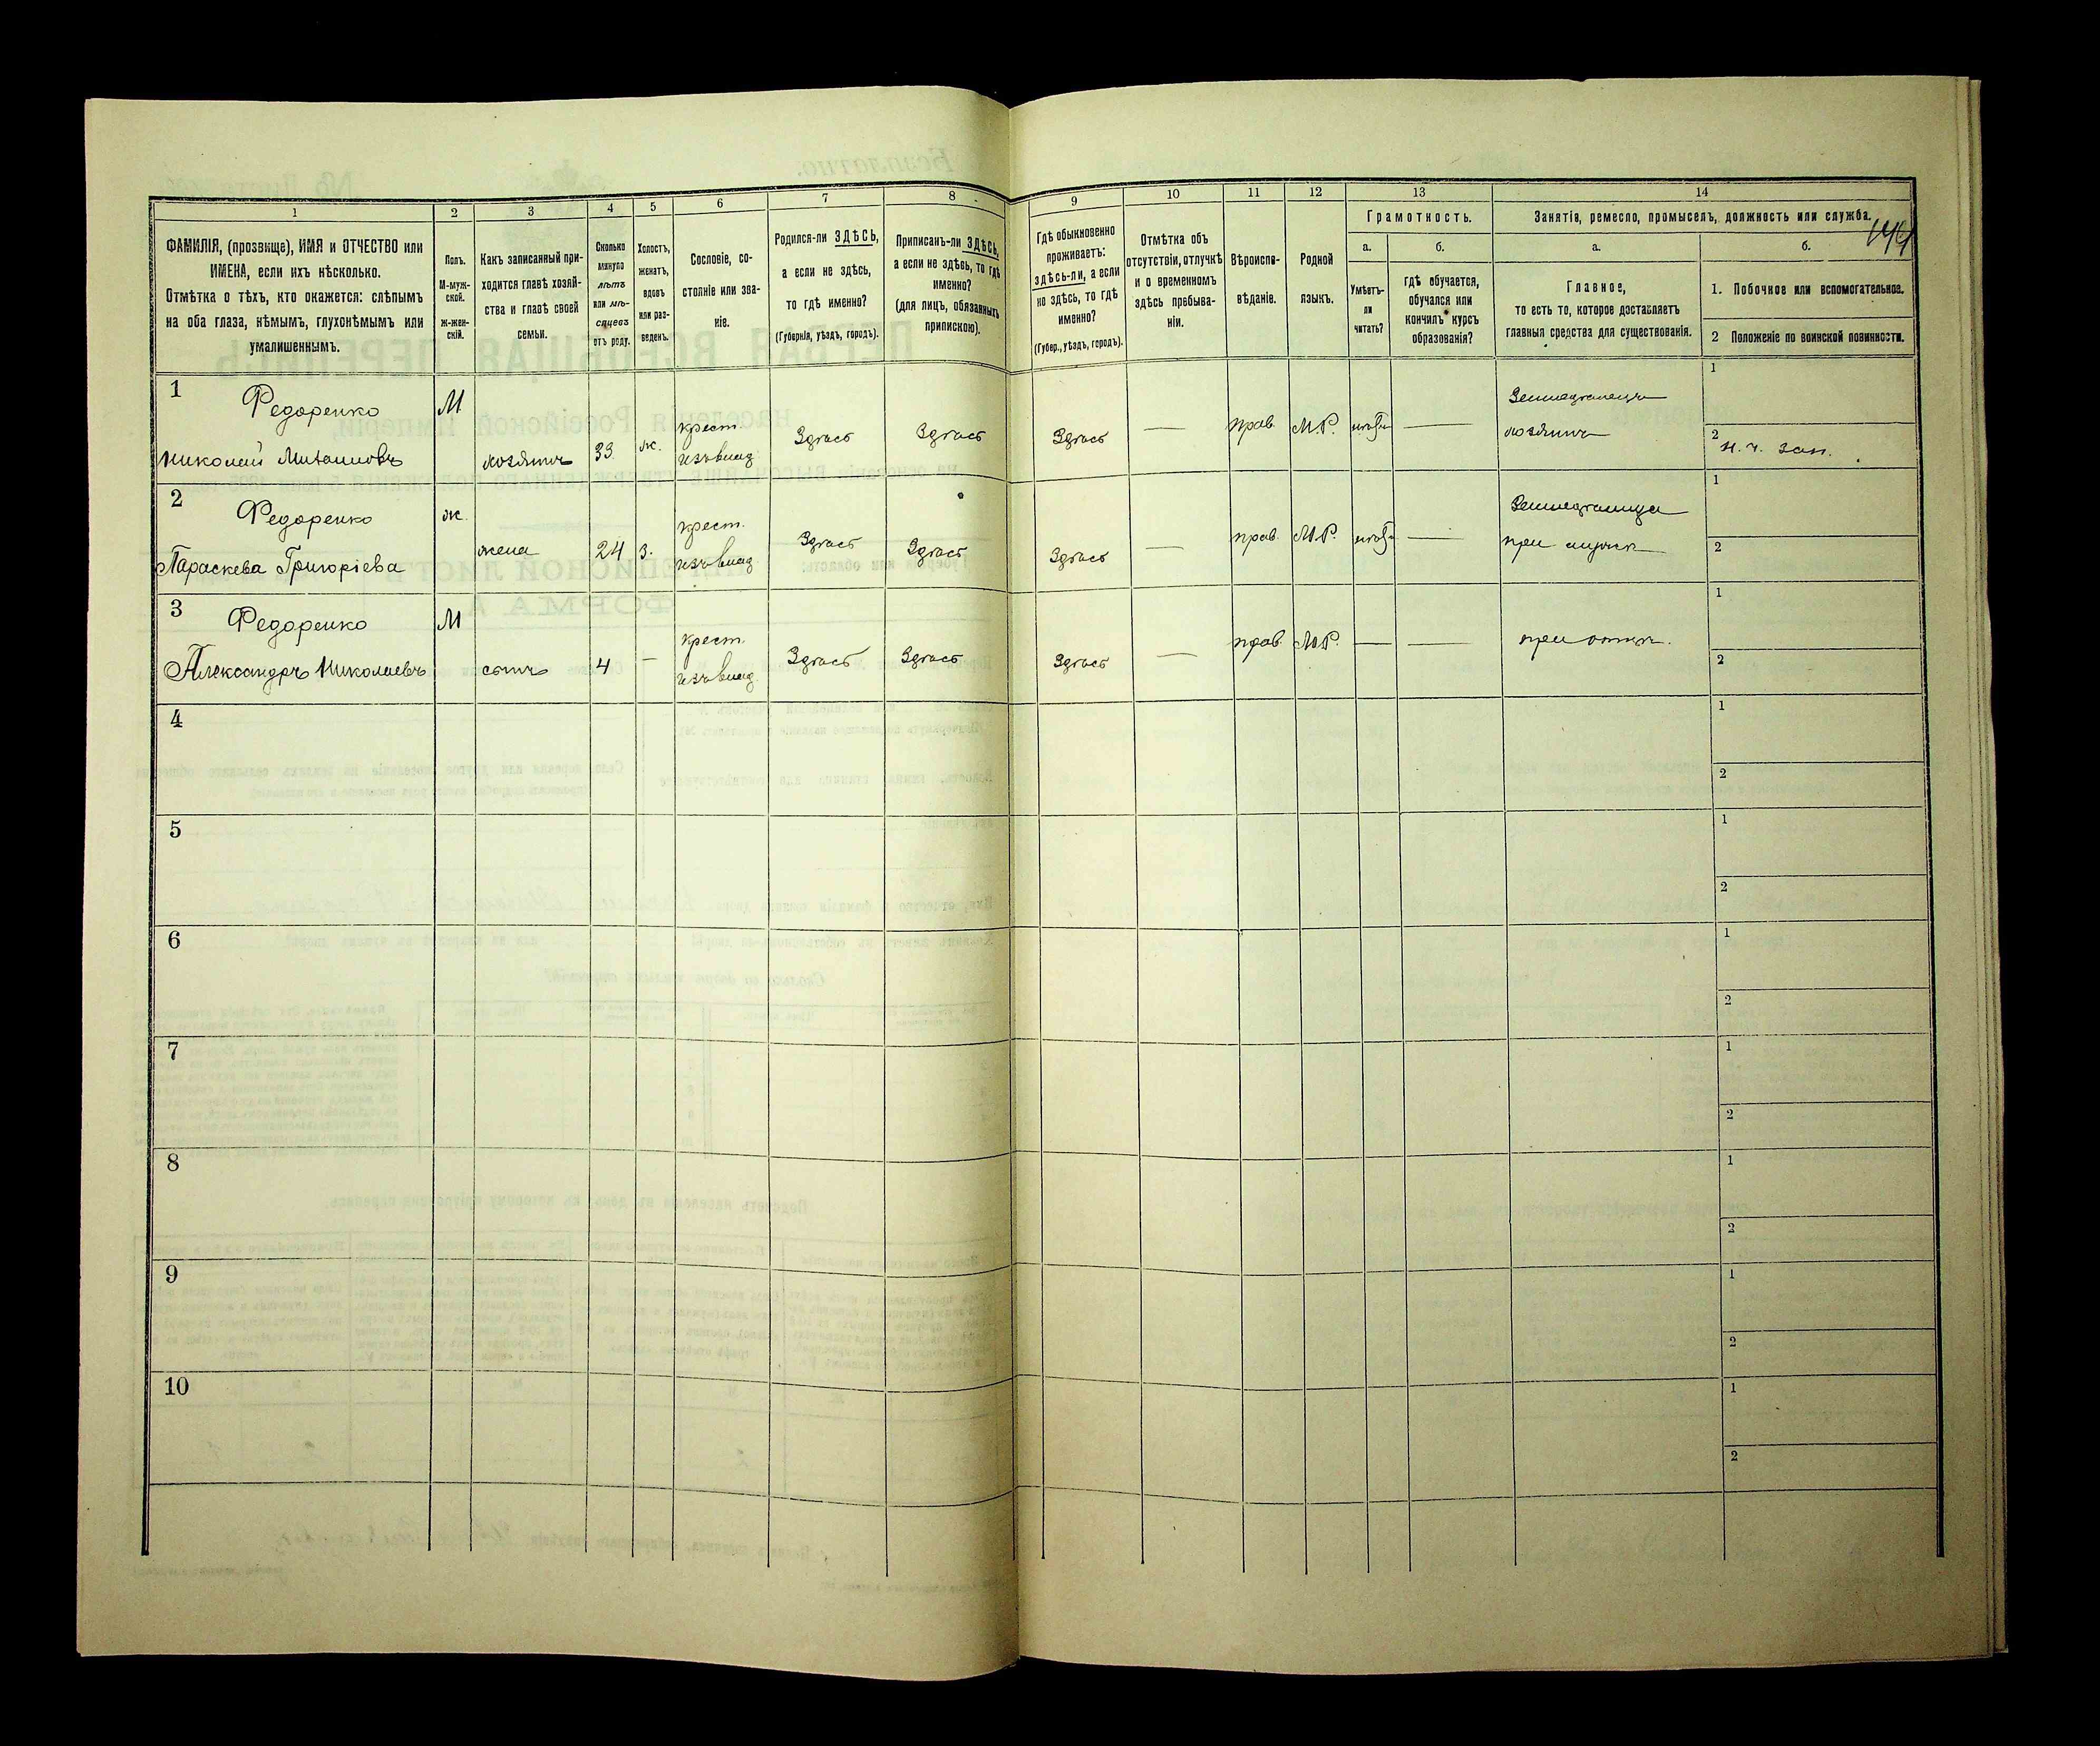 1 2 3 4 5 6 7 8 9 10 11 12 13 14
ФАМИЛІЯ, (прозвище), ИМЯ и ОТЧЕСТВО или
ИМЕНА, если ихъ нѣсколько.
Отмѣтка о тѣхъ, кто окажется: слѣпымъ
на оба глаза, нѣмымъ, глухонѣмымъ или
умалишеннымъ.
Полъ.
М-муж-
ской.
ж-жен-
скій.
Какъ записанный при-
ходится главѣ хозяй-
ства и главѣ своей
семьи.
Сколько
минуло
лѣтъ
или мѣ-
сяцевъ
отъ роду.
Холостъ,
женатъ,
вдовъ
или раз-
веденъ.
Сословіе, со-
стояніе или зва-
ніе.
Родился-ли ЗДѢСЬ,
а если не здѣсь,
то гдѣ именно?
(Губернія, уѣздъ, городъ).
Приписанъ-ли ЗДѢСЬ,
а если не здѣсь, то гдѣ
именно?
(для лицъ, обязанныхъ
припискою).
Гдѣ обыкновенно
проживаетъ:
здѣсь-ли, а если
не здѣсь, то гдѣ
именно?
(Губер., уѣздъ, городъ).
Отмѣтка объ
отсутствіи, отлучкѣ
и о временномъ
здѣсь пребыва-
ніи.
Вѣроиспо-
вѣданіе.
Родной
языкъ.
Грамотность.
а.
Умѣетъ-
ли
читать?
б.
гдѣ обучается,
обучался или
кончилъ курсъ
образованія?
Занятія, ремесло, промыселъ, должность или служба.
а.
Главное,
то есть то, которое доставляетъ
главныя средства для существованія.
б.
1. Побочное или вспомогательное.
2 Положеніе по воинской повинности.
1 Федоренко М крест. Земледѣлецъ 1
Николай Михаиловъ хозяинъ 33 ж. изъ влад. Здѣсь Здѣсь Здѣсь — прав. М.Р. — хозяинъ 2 н. ч. зап.
2 Федоренко ж. крест. Земледѣлица 1
Параскева Григоріева жена 24 з. изъ влад Здѣсь Здѣсь Здѣсь — прав. М.Р. — при мужѣ 2
3 Федоренко М крест. 1
Александръ Николаевъ сынъ 4 — изъ влад. Здѣсь Здѣсь Здѣсь — прав. М.Р. — — при отцѣ. 2
4 1
2
5 1
2
6 1
2
7 1
2
8 1
2
9 1
2
10 1
2